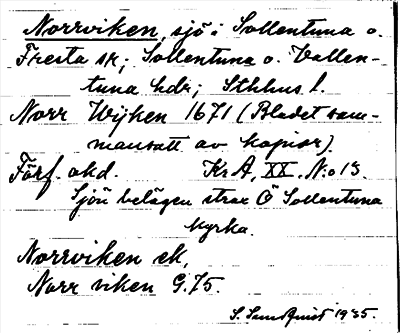 Norrviken, sjö i Sollentuna o.
Fresta sr; Sollentuna o. Vallen-
tuna hdr; Sthlms l.
Norr Wijken 1671 (Bladet sam-
mansatt av kopior).
Förf. okd. Kr A, XX. N:o 13.
Sjön belägen strax Ö Sollentuna
kyrka.
Norrviken ek,
Norr viken G.75.
S. Sundquist 1935.